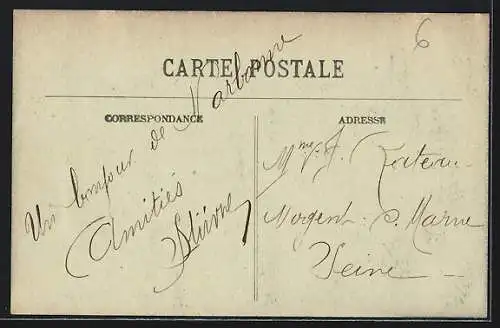 6
CARTE POSTALE
CORRESPONDANCE
Un bonjour de Narbonne
Amitiés
ADRESSE
Mme J.
Nogent s. Marne
Seine